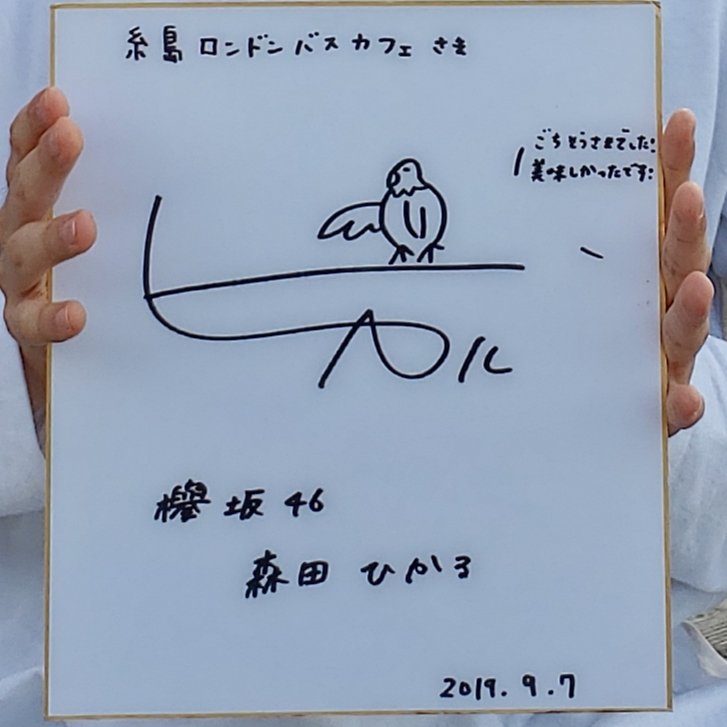 糸島 ロンドンバス カフェ さき
ごちそうさまでした!
美味しかったです!
ヒカル
欅坂46
森田 ひかる
2019.9.7